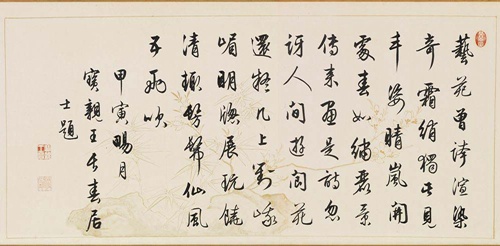 藝苑曾誇渲染
奇霜綃獨此見
丰姿晴嵐開
處春如繡景
傳來畫是詩忽
訝人間遊閬苑
還疑几上對峨
嵋明牕展玩饒
清趣髣髴仙風
吹
甲寅暢月
寶親王長春居
士題